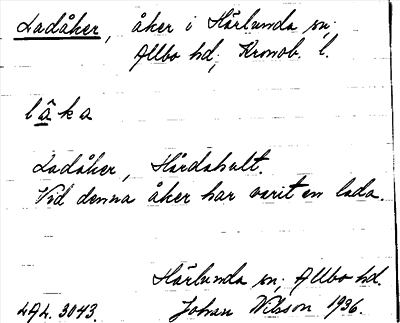 Ladåker, åker i Härlunda sn;
Allbo hd; Kronob. l.
lâka
Ladåker, Härdahult.
Vid denna åker har varit en lada.
Härlunda sn; Allbo hd.
LAL. 3043. Johan Nilsson 1936.